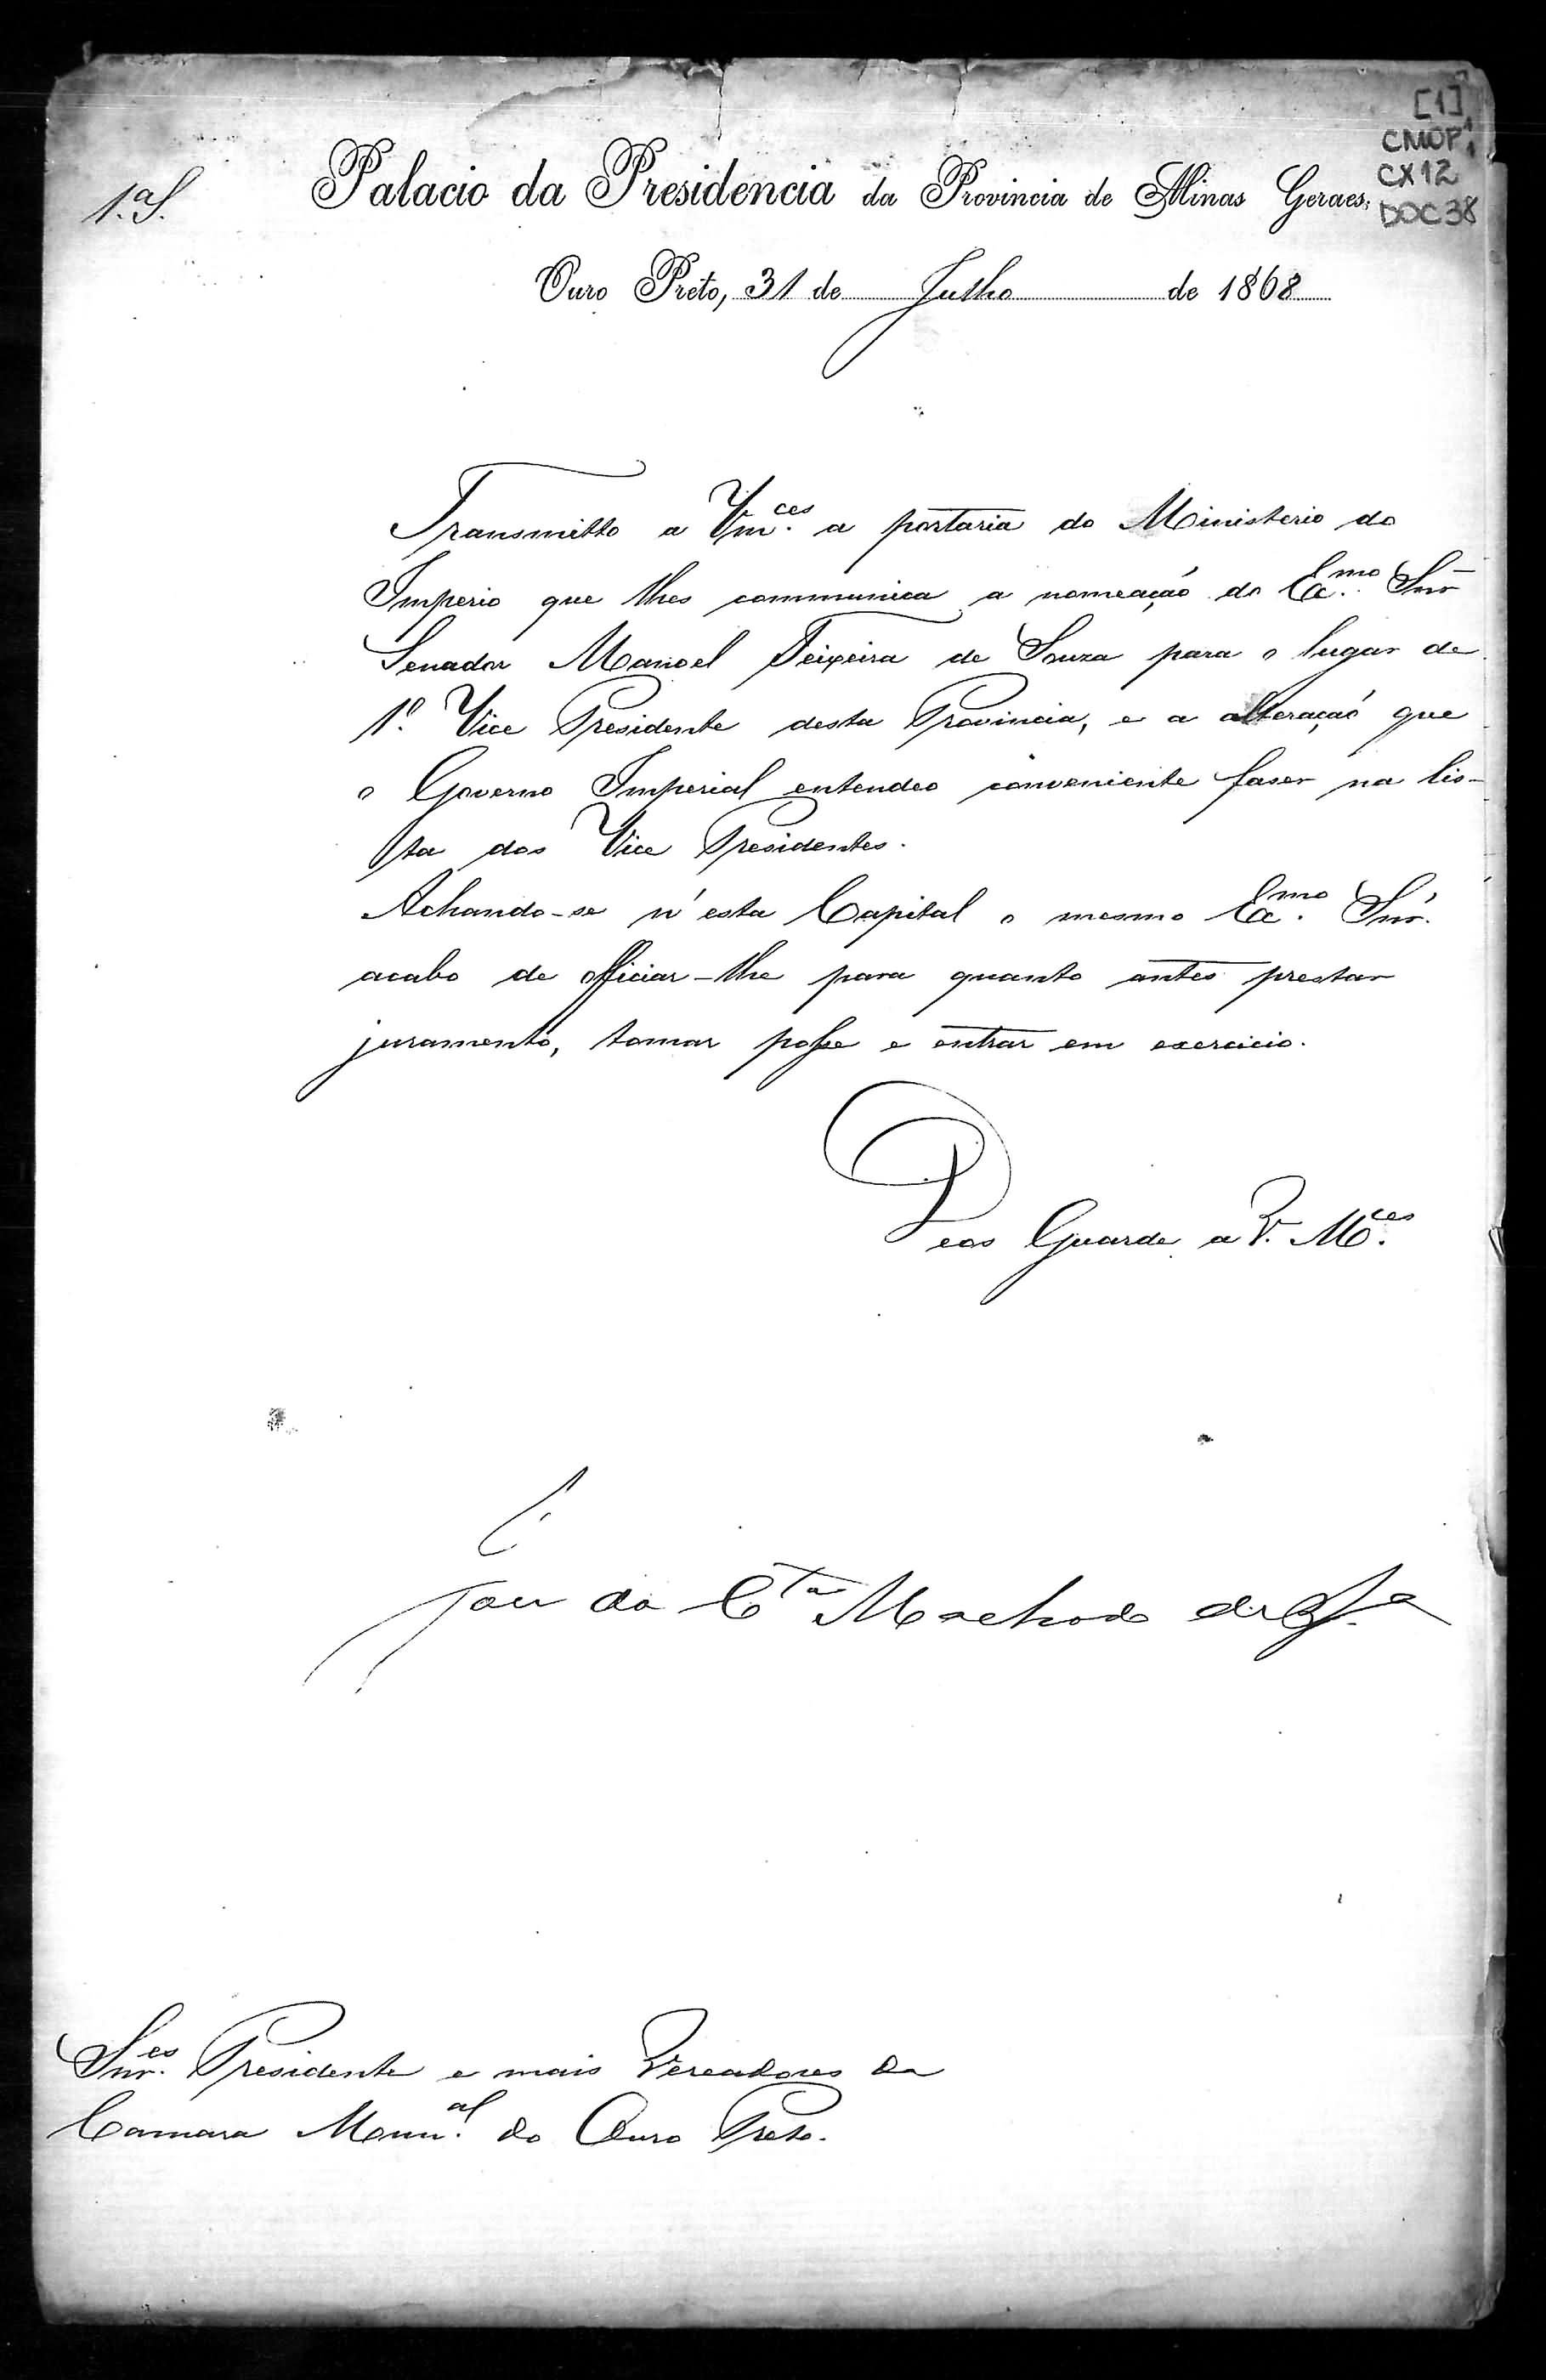 [1]
CMOP,
CX12
DOC38
1.ª S.
Palacio da Presidencia da Provincia de Minas Geraes,
Ouro Preto, 31 de Julho de 1868
Transmitto a Vm.ces a portaria do Ministerio do
Imperio que lhes communica a nomeação do Ex.mo Snr
Senador Manoel Teixeira de Souza para o lugar de
1.º Vice Presidente desta Provincia, e a alteração que
o Governo Imperial entendeo conveniente faser na lis-
ta dos Vice Presidentes.
Achando-se n'esta Capital o mesmo Ex.mo Snr.
acabo de officiar-lhe para quanto antes prestar
juramento, tomar posse e entrar em exercicio.
Deos Guarde a V. M.ces
da C.ta Machado de
Snr.es Presidente e mais Vereadores da
Camara Mun.al do Ouro Preto.